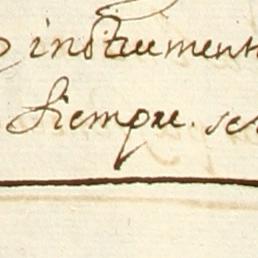 instrument
siempre. se